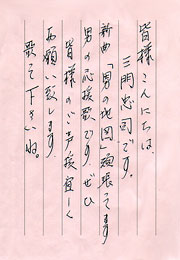 皆様こんにちは、
三門忠司です。
新曲「男の地図」頑張ってます
男の応援歌です ぜひ
皆様のご声援宜しく
お願い致します
歌って下さいね。